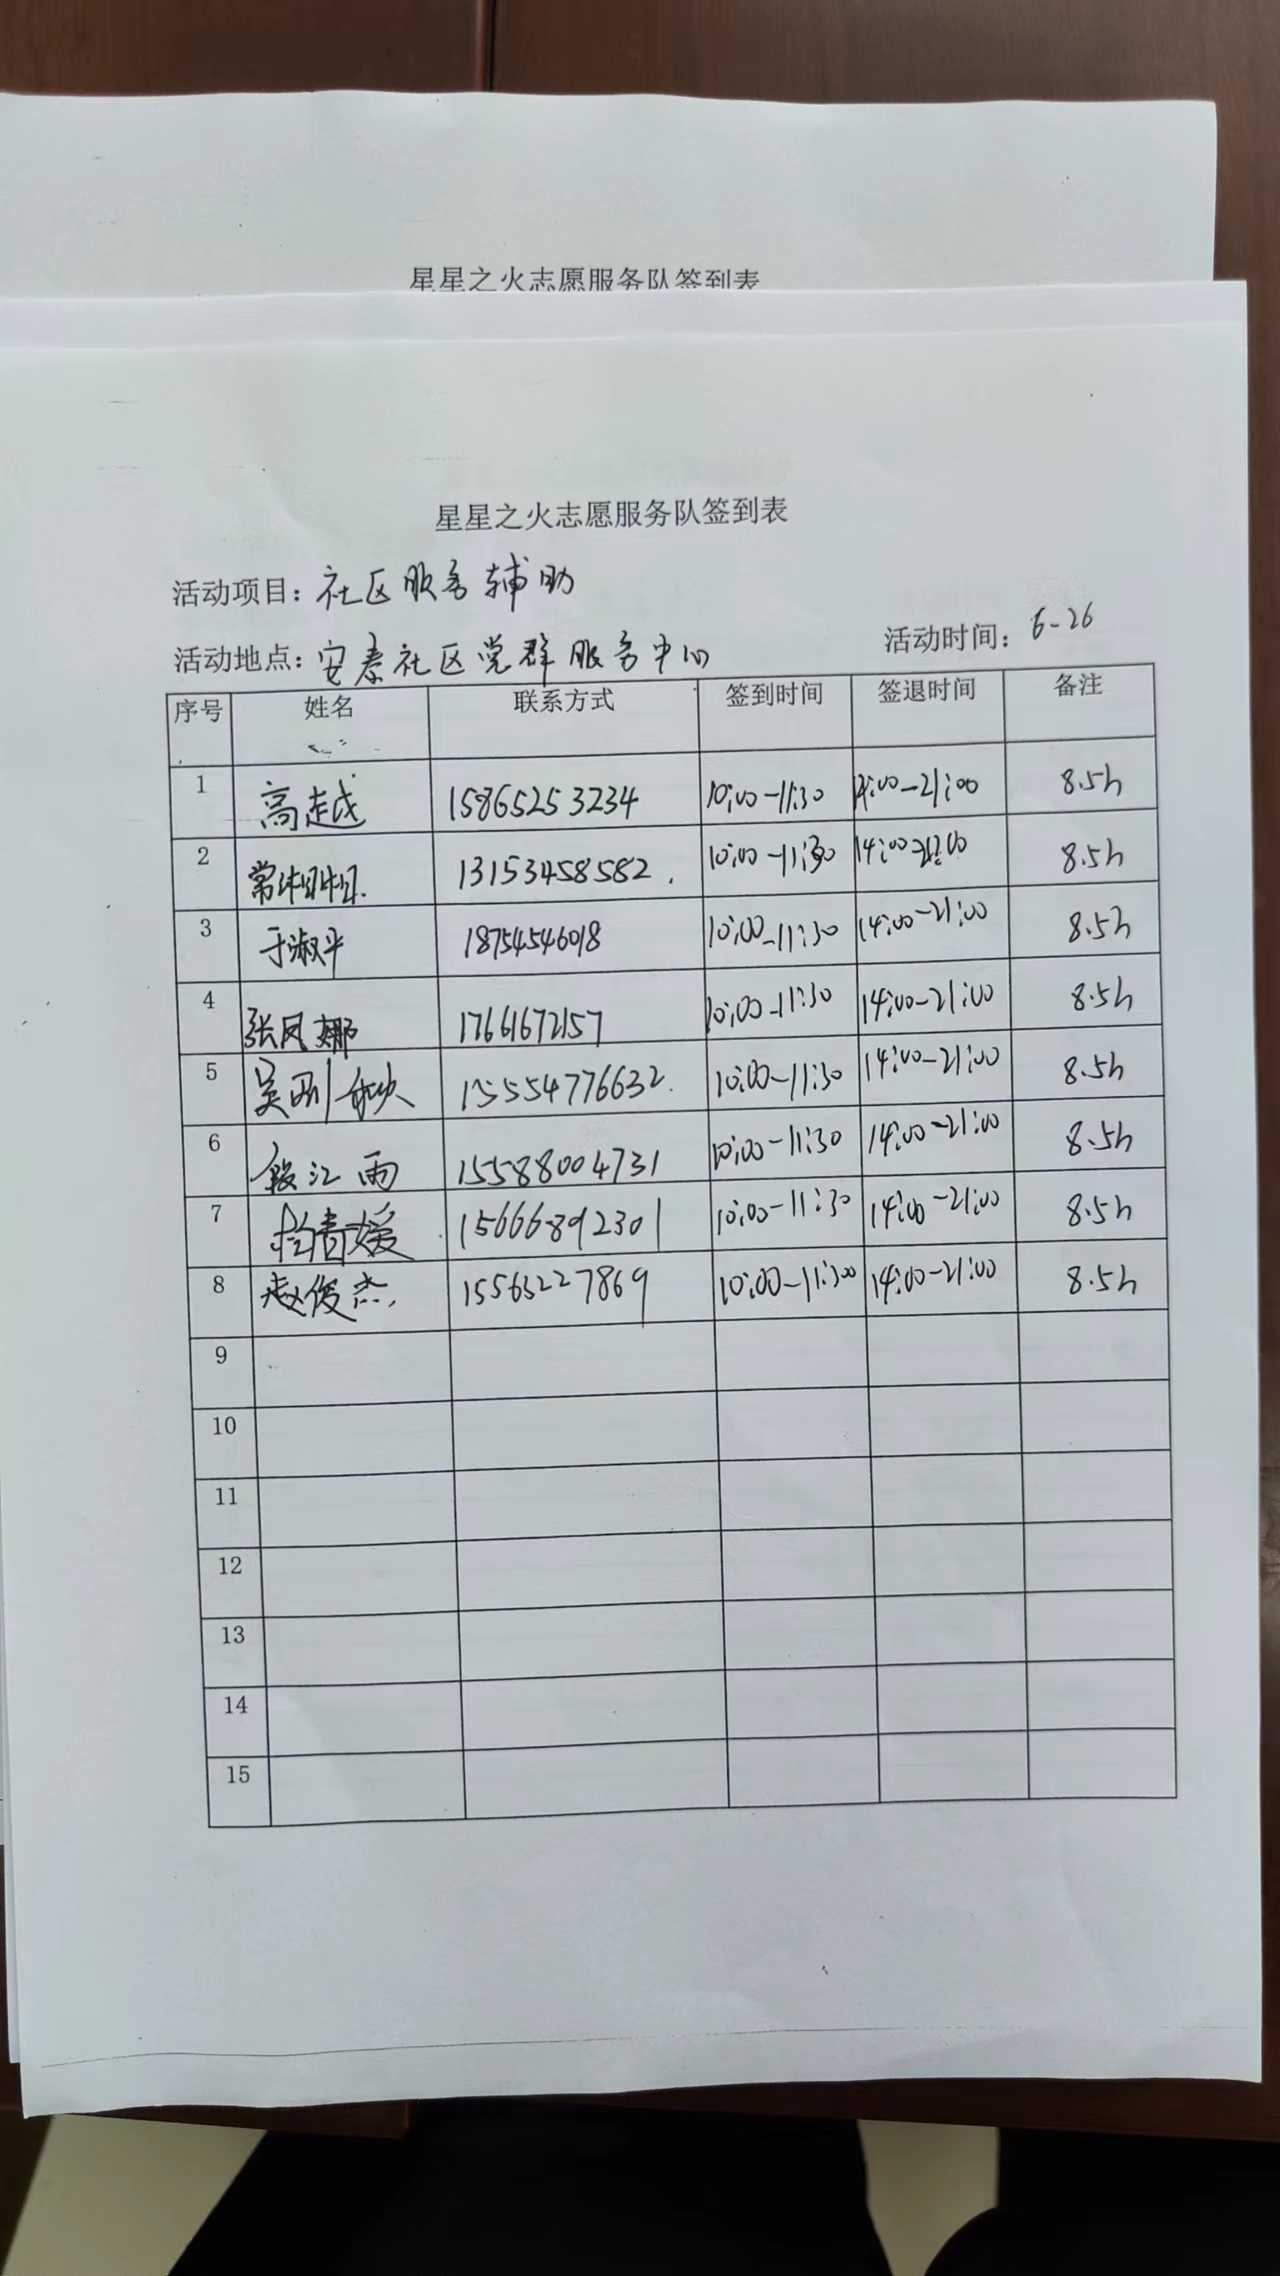 星星之火志愿服务队签到表
星星之火志愿服务队签到表
活动项目：社区服务辅助
活动地点：安泰社区党群服务中心 活动时间：6-26
序号 姓名 联系方式 签到时间 签退时间 备注
1 高越 15865253234 10:00-11:30 14:00-21:00 8.5h
2 常 13153458582. 10:00-11:30 14:00-21:00 8.5h
3 于淑平 18754546018 10:00-11:30 14:00-21:00 8.5h
4 张凤娜 17661672157 10:00-11:30 14:00-21:00 8.5h
5 吴 15554776632. 10:00-11:30 14:00-21:00 8.5h
6 江雨 15588004731 10:00-11:30 14:00-21:00 8.5h
7 青媛 15666892301 10:00-11:30 14:00-21:00 8.5h
8 赵俊杰. 15563227869 10:00-11:300 14:00-21:00 8.5h
9
10
11
12
13
14
15